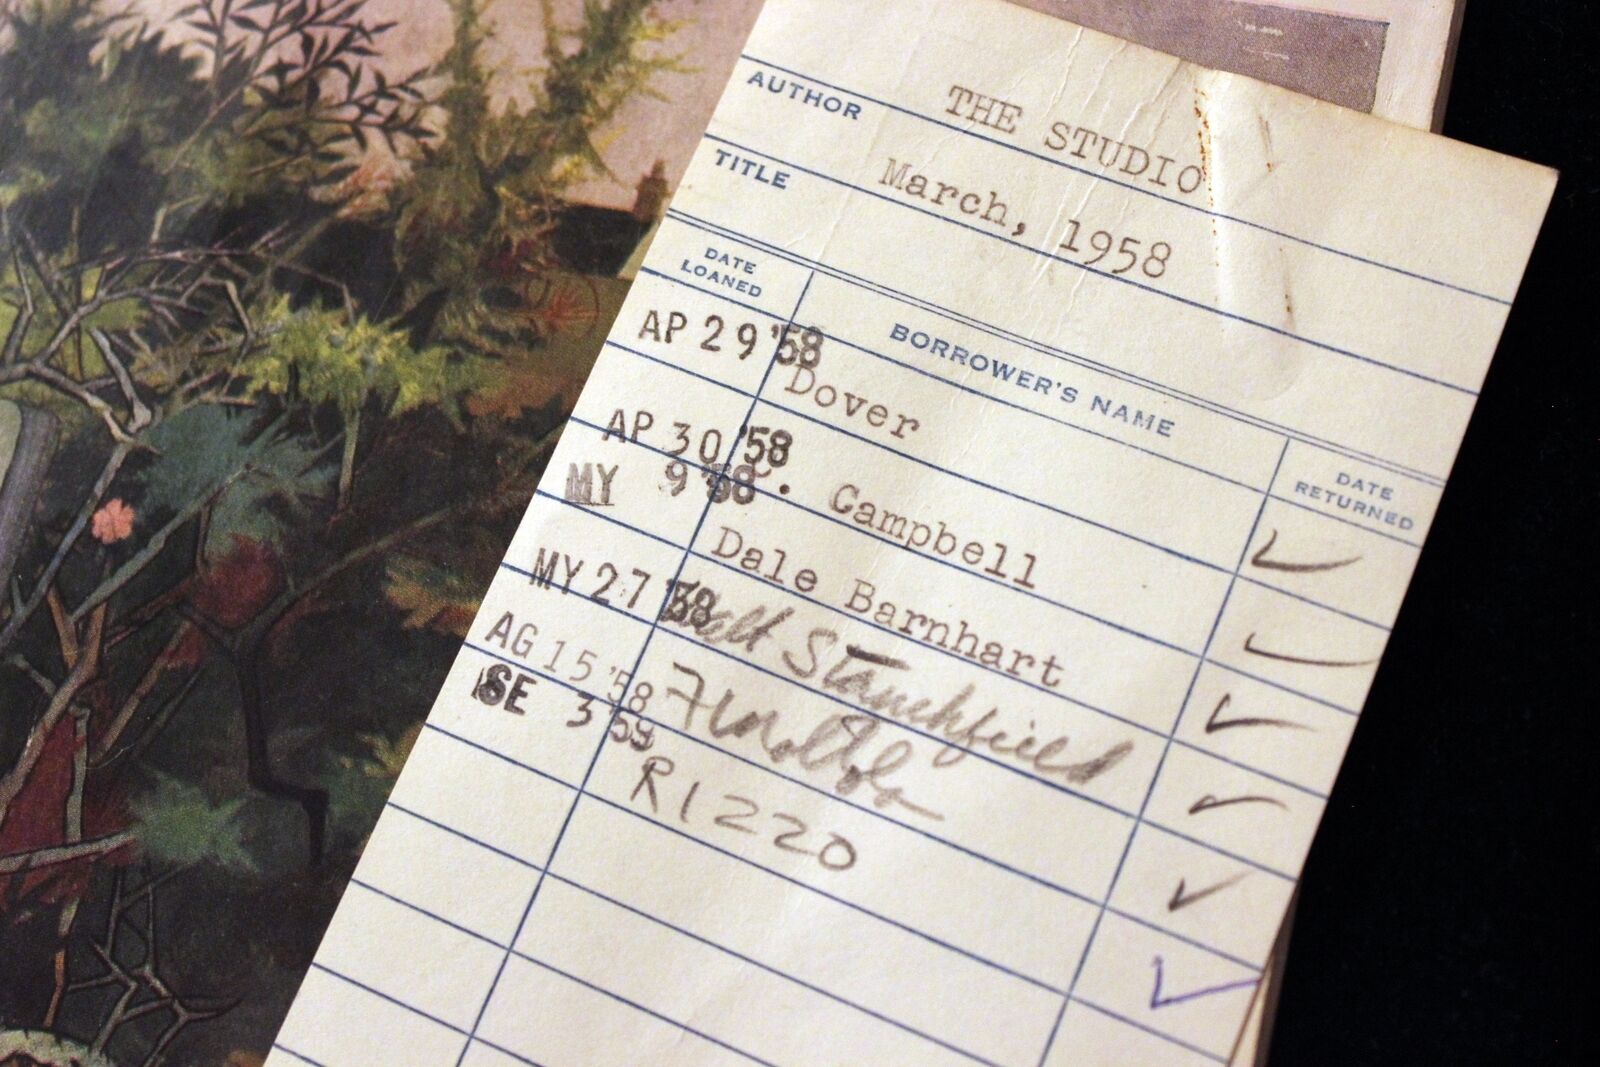 AUTHOR THE STUDIO
TITLE March, 1958
DATE LOANED BORROWER'S NAME DATE RETURNED
AP 29 '58 Dover
AP 30 '58 C. Campbell
MY 9 '58 Dale Barnhart
MY 27 '58 Walt Stanchfield
AG 15 '58
SE 3 '59 R1220